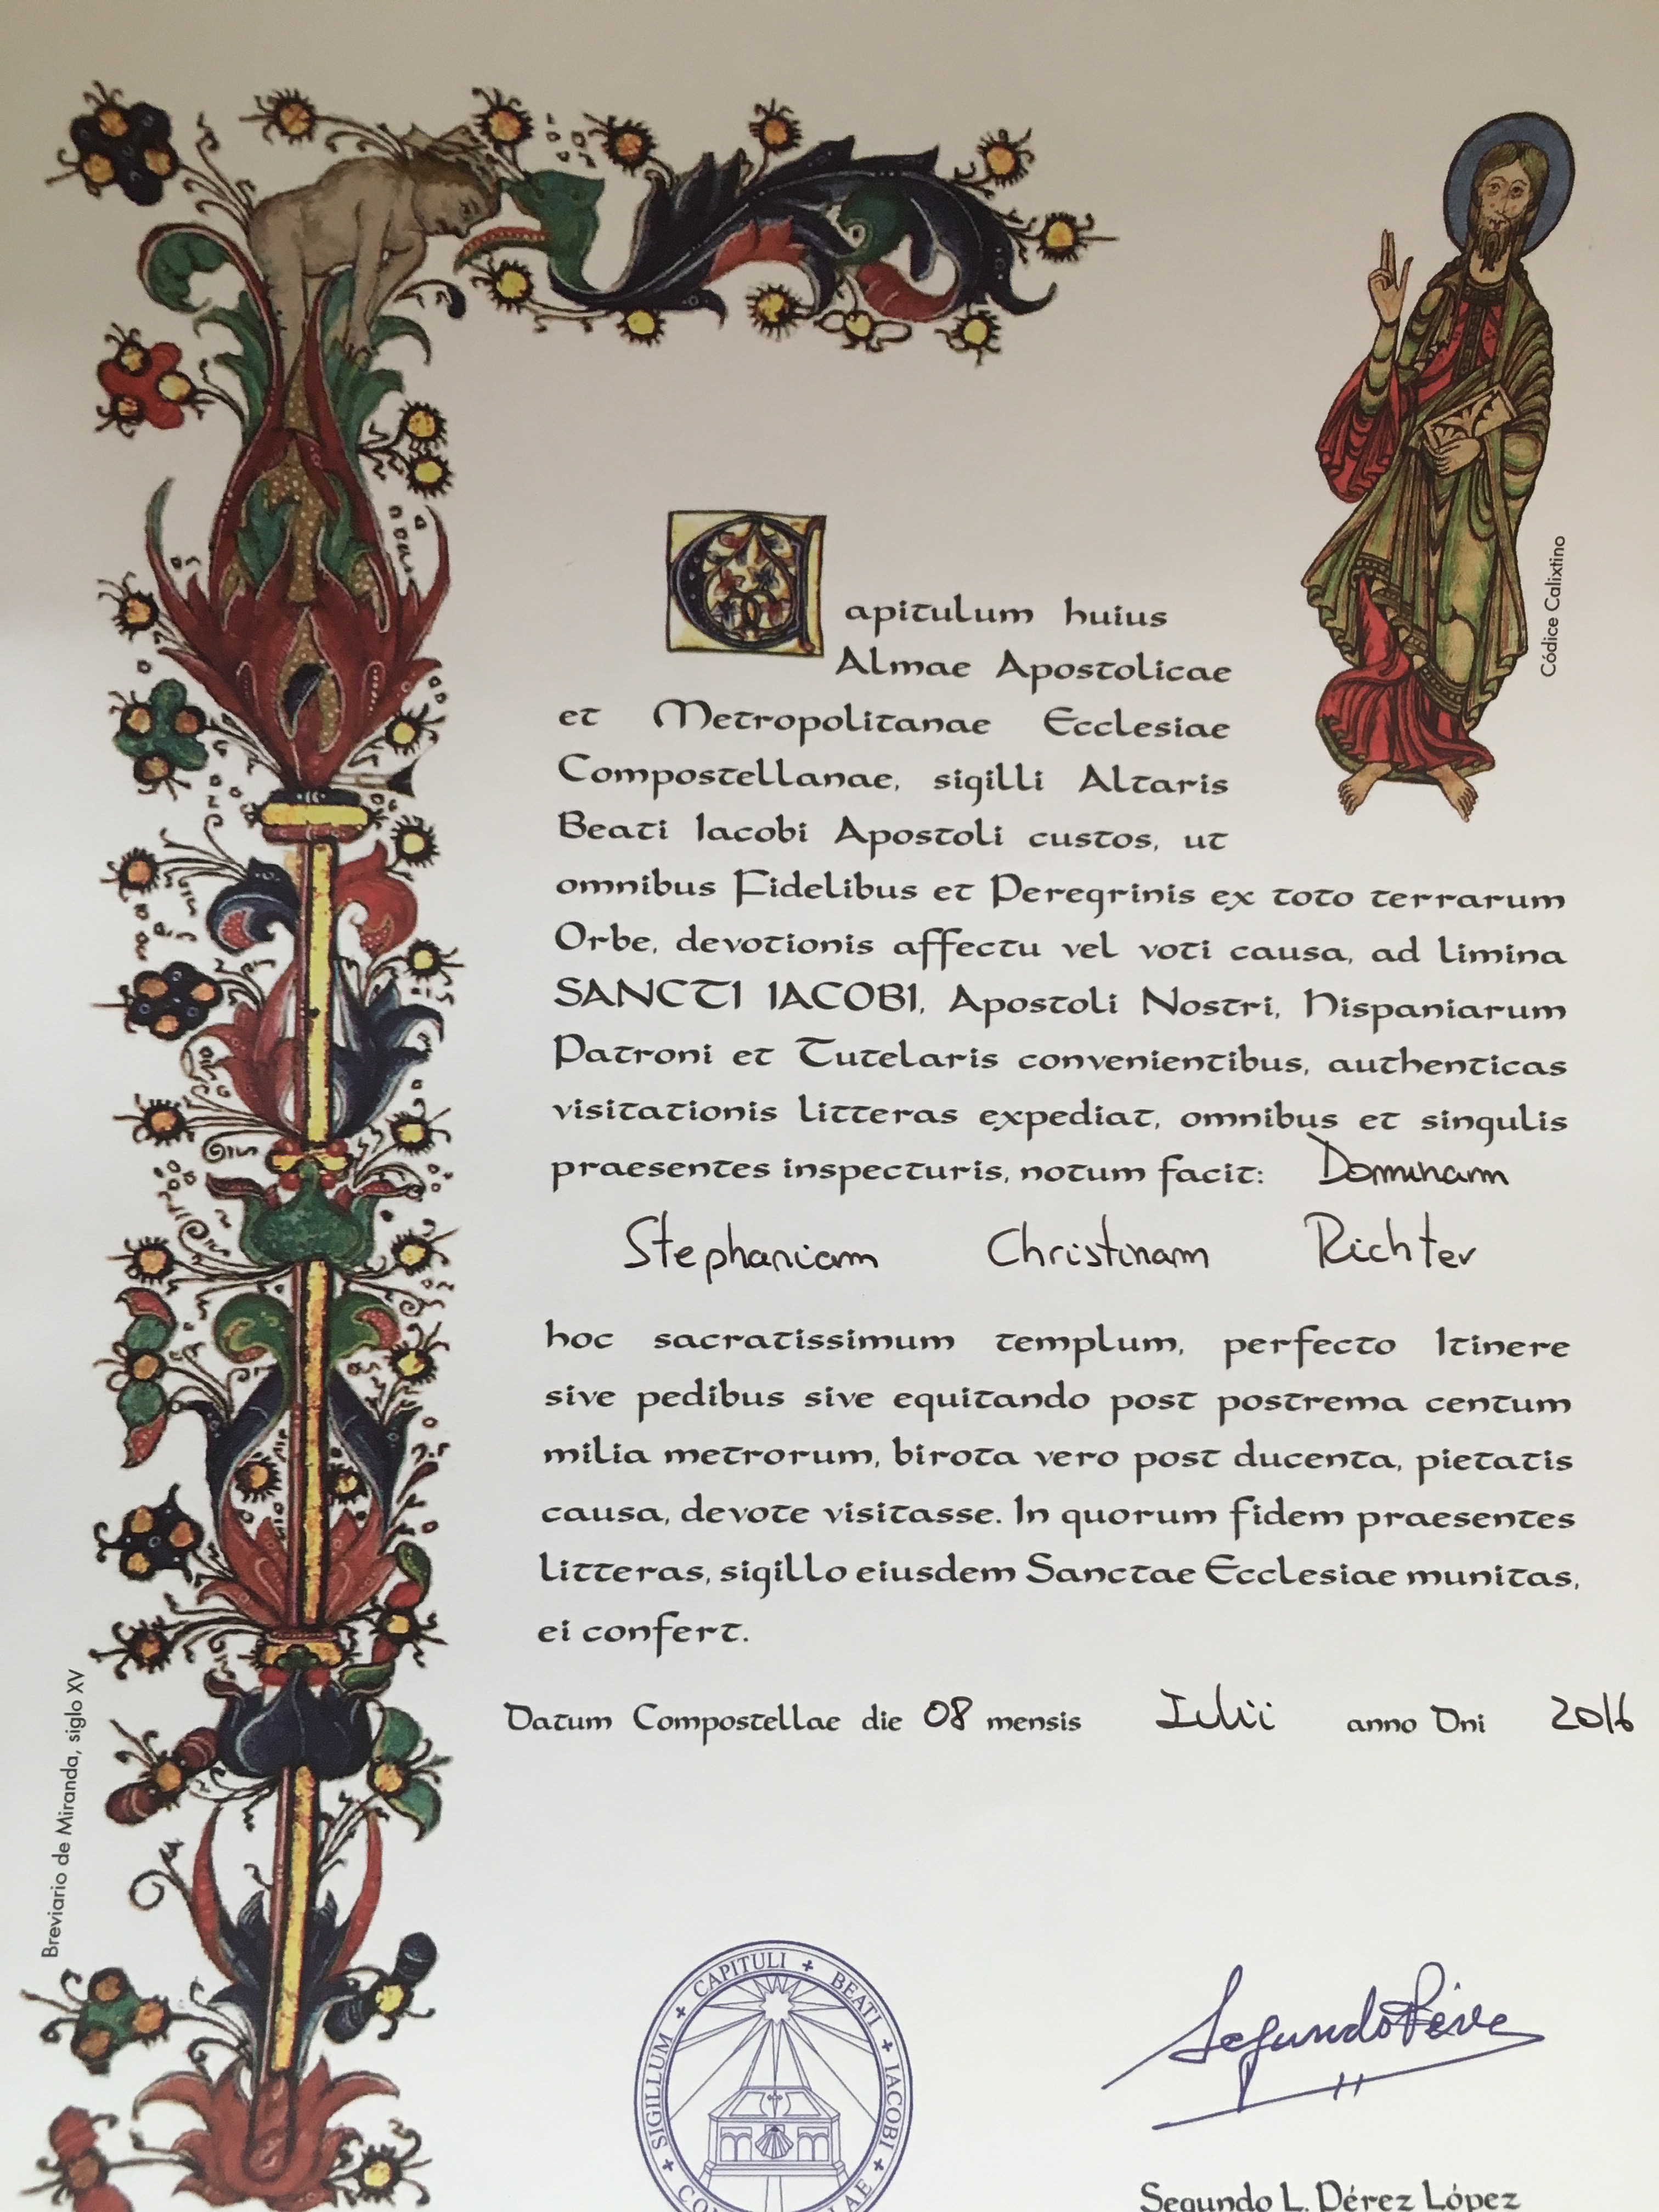 Códice Calixtino
Capitulum huius
Almae Apostolicae
et Metropolitanae Ecclesiae
Compostellanae, sigilli Altaris
Beati Iacobi Apostoli custos, ut
omnibus Fidelibus et Peregrinis ex toto terrarum
Orbe, devotionis affectu vel voti causa, ad limina
SANCTI IACOBI, Apostoli Nostri, Hispaniarum
Patroni et Tutelaris convenientibus, authenticas
visitationis litteras expediat, omnibus et singulis
praesentes inspecturis, notum facit: Dominam
Stephaniam Christinam Richter
hoc sacratissimum templum, perfecto Itinere
sive pedibus sive equitando post postrema centum
milia metrorum, birota vero post ducenta, pietatis
causa, devote visitasse. In quorum fidem praesentes
litteras, sigillo eiusdem Sanctae Ecclesiae munitas,
ei confert.
Datum Compostellae die 08 mensis Iulii anno Dni 2016
Breviario de Miranda, siglo XV
SIGILLUM + CAPITULI + BEATI + IACOBI +
Segundo L. Pérez López